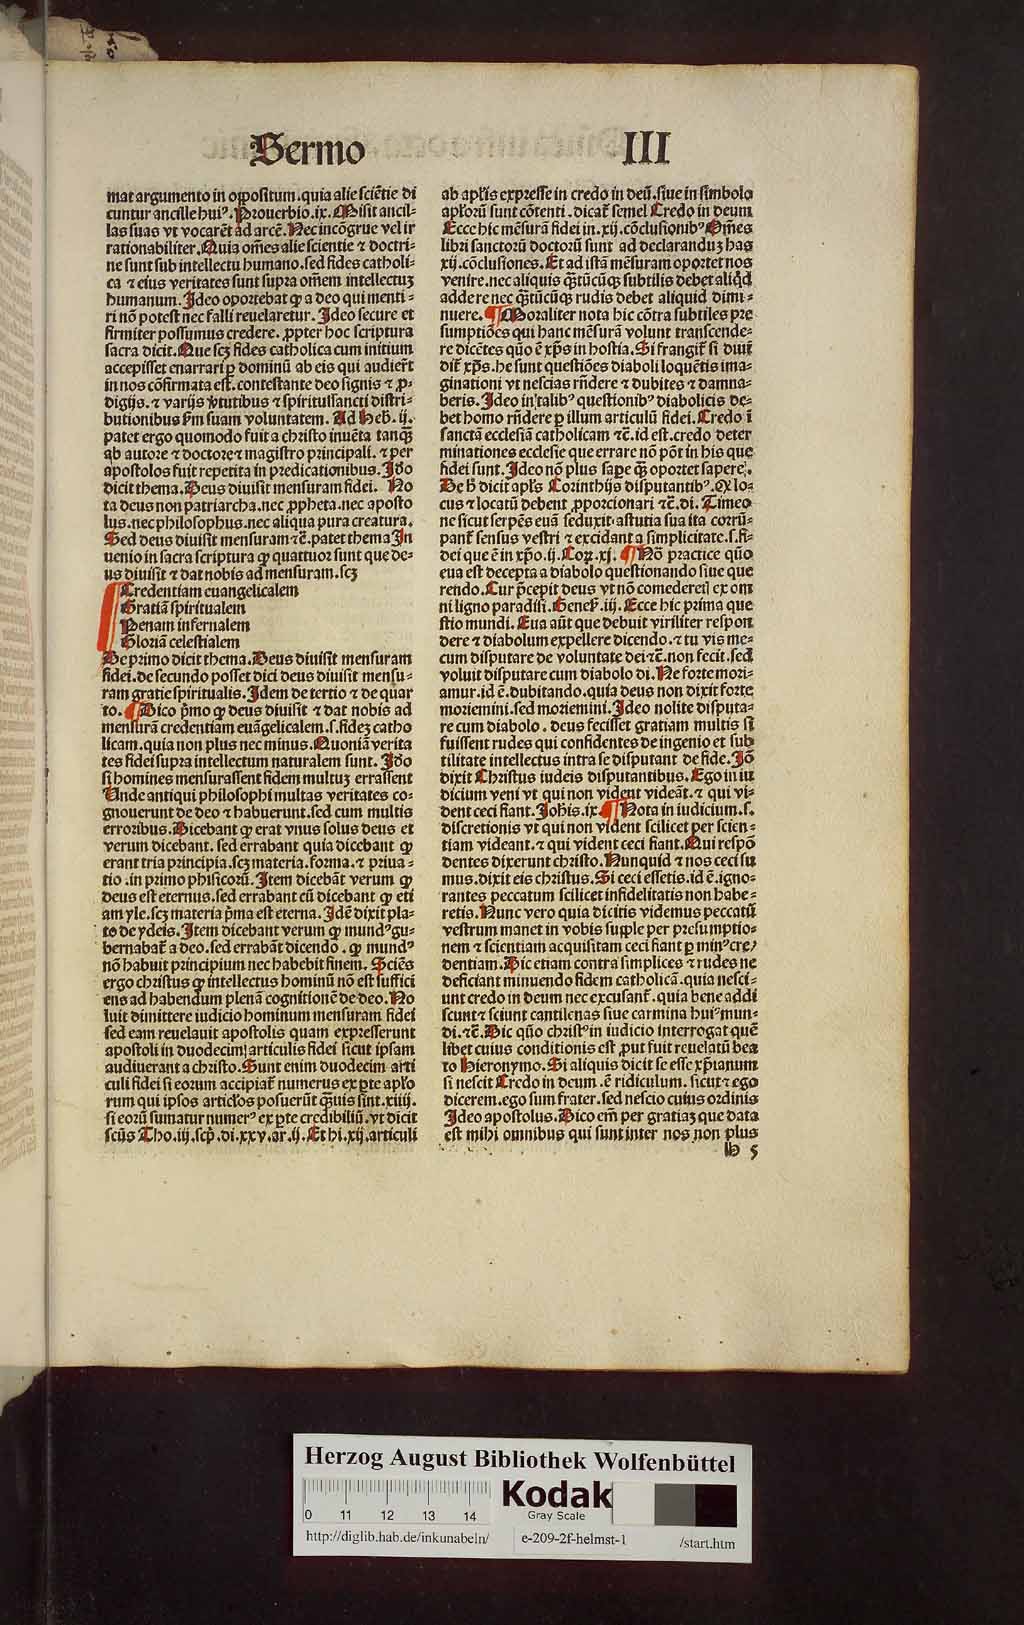 Sermo III
mat argumento in oppositum.quia alie sciētie di
cuntur ancille huiꝰ. Prouerbio.ix. Misit ancil-
las suas vt vocarēt ad arcē. Nec incōgrue vel ir
rationabiliter. Quia om̄es alie scientie ⁊ doctri-
ne sunt sub intellectu humano.sed fides catholi-
ca ⁊ eius veritates sunt supra om̄em intellectuꝫ
humanum. Ideo oportebat ꝙ a deo qui menti-
ri nō potest nec falli reuelaretur. Ideo secure et
firmiter possumus credere. ꝓpter hoc scriptura
sacra dicit. Que scꝫ fides catholica cum initium
accepisset enarrari ꝑ dominū ab eis qui audiert̄
in nos cōfirmata est. contestante deo signis ⁊ ꝓ-
digijs. ⁊ varijs v̄tutibus ⁊ spiritussancti distri-
butionibus s̄m suam voluntatem. Ad Heb̄. ij.
patet ergo quomodo fuit a christo inuēta tanqȝ
ab autore ⁊ doctore ⁊ magistro principali. ⁊ per
apostolos fuit repetita in predicationibus. Iōo
dicit thema. Deus diuisit mensuram fidei. No
ta deus non patriarcha.nec ꝓpheta.nec aposto
lus.nec philosophus.nec aliqua pura creatura.
Sed deus diuisit mensuram ⁊c̄. patet thema In
uenio in sacra scriptura ꝙ quattuor sunt que de-
us diuisit ⁊ dat nobis ad mensuram.scꝫ
Credentiam euangelicalem
Gratiā spiritualem
Penam infernalem
Gloriā celestialem
De primo dicit thema. Deus diuisit mensuram
fidei.de secundo posset dici deus diuisit mensu-
ram gratie spiritualis. Idem de tertio ⁊ de quar
to. ¶ Dico p̄mo ꝙ deus diuisit ⁊ dat nobis ad
mensurā credentiam euāgelicalem.s.fideꝫ catho
licam.quia non plus nec minus. Quoniā verita
tes fidei supra intellectum naturalem sunt. Iōo
si homines mensurassent fidem multuꝫ errassent
Unde antiqui philosophi multas veritates co-
gnouerunt de deo ⁊ habuerunt.sed cum multis
erroribus. Dicebant ꝙ erat vnus solus deus et
verum dicebant. sed errabant quia dicebant ꝙ
erant tria principia.scꝫ materia.forma.⁊ priua-
tio.in primo phisicorū. Item dicebāt verum ꝙ
deus est eternus.sed errabant cū dicebant ꝙ eti
am yle.scꝫ materia p̄ma est eterna. Idē dixit pla-
to de ydeis. Item dicebant verum ꝙ mundꝰ gu-
bernabat̄ a deo.sed errabāt dicendo. ꝙ mundꝰ
nō habuit principium nec habebit finem. Sciēs
ergo christus ꝙ intellectus hominū nō est suffici
ens ad habendum plenā cognitionē de deo. No
luit dimittere iudicio hominum mensuram fidei
sed eam reuelauit apostolis quam expresserunt
apostoli in duodecim articulis fidei sicut ipsam
audiuerant a christo. Sunt enim duodecim arti
culi fidei si eorum accipiat̄ numerus ex ꝑte apl̄o
rum qui ipsos articl̄os posuerūt qȝuis sint.xiiij.
si eorū sumatur numerꝰ ex ꝑte credibiliū.vt dicit
scūs Tho.iij.scp̄.di.xxv.ar.ij. Et hi.xij.articuli
ab apl̄is expresse in credo in deū.siue in simbolo
apl̄orū sunt cōtenti. dicat̄ semel Credo in deum
Ecce hic mēsurā fidei in.xij.cōclusionibꝰ Om̄es
libri sanctorū doctorū sunt ad declaranduꝫ has
xij.cōclusiones. Et ad istā mēsuram oportet nos
venire.nec aliquis qȝtūcūqȝ subtilis debet aliqd̓
addere nec qȝtūcūqȝ rudis debet aliquid dimi-
nuere. ¶ Moraliter nota hic cōtra subtiles pre
sumptiōes qui hanc mēsurā volunt transcende-
re dicētes quō ē xp̄s in hostia. Si frangit̄ si diui
dit̄ xp̄s. he sunt questiōes diaboli loquētis ima-
ginationi vt nescias rn̄dere ⁊ dubites ⁊ damna-
beris. Ideo in talibꝰ questionibꝰ diabolicis de-
bet homo rn̄dere ꝑ illum articulū fidei. Credo ī
sanctā ecclesiā catholicam ⁊c̄. id est.credo deter
minationes ecclesie que errare nō pōt in his que
fidei sunt. Ideo nō plus sape qȝ oportet sapere.
De h̄ dicit apl̄s Corinthijs disputantibꝰ. Ex lo-
cus ⁊ locatū debent ꝓporcionari ⁊c̄. di. Timeo
ne sicut serpēs euā seduxit astutia sua ita corrū-
pant̄ sensus vestri ⁊ excidant a simplicitate.s.fi-
dei que ē in xp̄o.ij. Coꝝ.xj. ¶ Nō practice quō
eua est decepta a diabolo questionando siue que
rendo. Cur p̄cepit deus vt nō comederetꝭ ex om
ni ligno paradisi. Genes̄. iij. Ecce hic prima que
stio mundi. Eua aūt que debuit viriliter respon
dere ⁊ diabolum expellere dicendo. ⁊ tu vis me-
cum disputare de voluntate dei ⁊c̄.non fecit.sed
voluit disputare cum diabolo di. Ne forte mori-
amur.id ē.dubitando.quia deus non dixit forte
moriemini.sed moriemini. Ideo nolite disputa-
re cum diabolo. deus fecisset gratiam multis si
fuissent rudes qui confidentes de ingenio et sub
tilitate intellectus intra se disputant de fide. Iō
dixit Christus iudeis disputantibus. Ego in iu
dicium veni vt qui non vident videāt.⁊ qui vi-
dent ceci fiant. Joh̄is.ix. ¶ Nota in iudicium.s.
discretionis vt qui non vident scilicet per scien-
tiam videant.⁊ qui vident ceci fiant. Qui respō
dentes dixerunt christo. Nunquid ⁊ nos ceci su
mus.dixit eis christus. Si ceci essetis.id ē.igno-
rantes peccatum scilicet infidelitatis non habe-
retis. Nunc vero quia dicitis videmus peccatū
vestrum manet in vobis supple per presumptio-
nem ⁊ scientiam acquisitam ceci fiant ꝑ minꝰ cre-
dentiam. Dic etiam contra simplices ⁊ rudes ne
deficiant minuendo fidem catholicā.quia nesci-
unt credo in deum nec excusant̄.quia bene addi
scunt ⁊ sciunt cantilenas siue carmina huiꝰ mun-
di.⁊c̄. Dic quō christꝰ in iudicio interrogat quē
libet cuius conditionis est ꝓut fuit reuelatū bea
to Hieronymo. Si aliquis dicit se esse xp̄ianum
si nescit Credo in deum.ē ridiculum. sicut ⁊ ego
dicerem.ego sum frater.sed nescio cuius ordinis
Ideo apostolus. Dico em̄ per gratiaꝫ que data
est mihi omnibus qui sunt inter nos non plus
b 5
Herzog August Bibliothek Wolfenbüttel
0 11 12 13 14
Kodak
Gray Scale
http://diglib.hab.de/inkunabeln/ e-209-2f-helmst-1 /start.htm